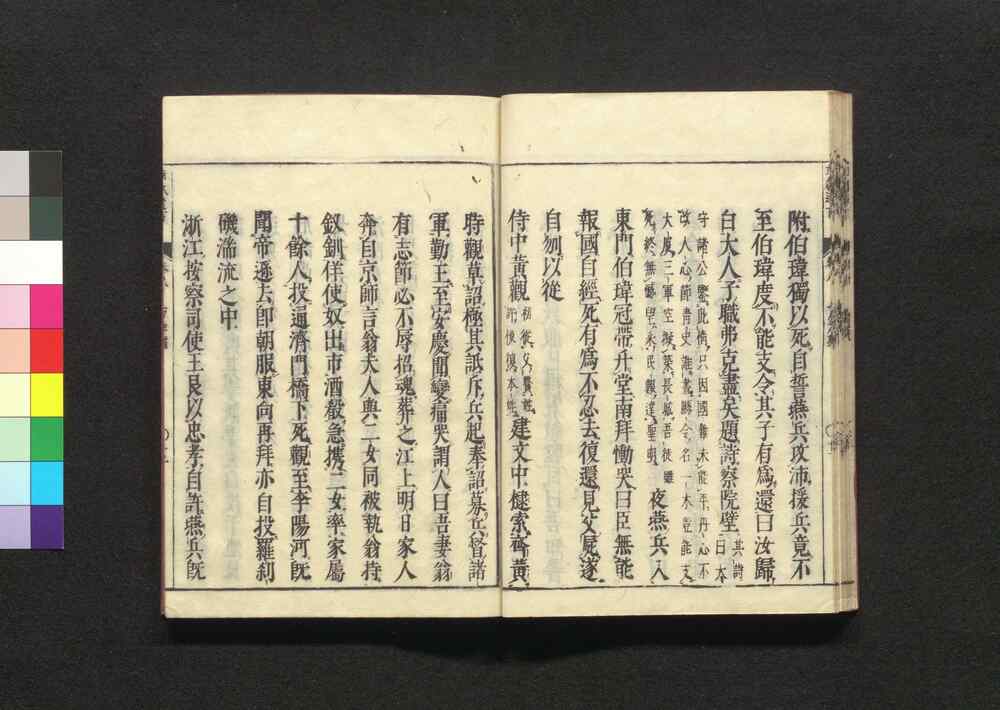 附伯瑋獨以死自誓燕兵攻沛援兵竟不
至伯瑋度不能支令其子有爲還曰汝歸
白大人子職弗克盡矣題詩察院壁
其詩曰
守諸公鑒此情只因國難未能平丹心不
改人臣節青史誰書縣令名一木豈能支
大廈三軍空擬築長城吾徒雖
死終無憾望
夜燕兵入
東門伯瑋冠帶升堂南拜慟哭曰臣無能
報國自經死有爲不忍去復還見父屍遂
自刎以從
侍中黃觀
初從父贅
許後復本姓
建文中
時觀草詔極其詆斥兵起奉詔募兵督諸
軍勤王至安慶聞變痛哭謂人曰吾妻翁
有志節必不辱招魂葬之江上明日家人
奔自京師言翁夫人與二女同被執翁持
釵釧佯使奴出市酒殽急攜二女率家屬
十餘人投通濟門橋下死觀至李陽河旣
聞帝遜去卽朝服東向再拜亦自投羅刹
磯湍流之中
浙江按察司使王良以忠孝自許燕兵旣